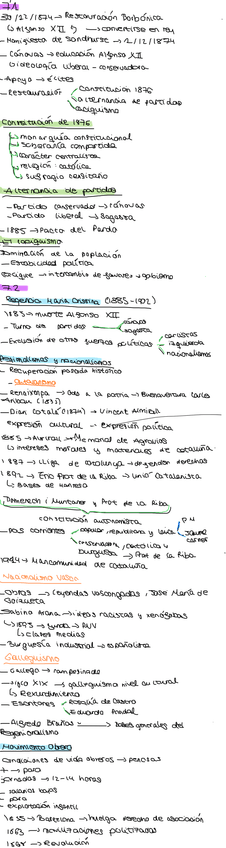 7.1
29/12/1874 → Restauración Borbónica
↳ Alfonso XII → convertirse en rey
- Manifiesto de Sandhurst → 1/12/1874
- Cánovas → educación Alfonso XII
↳ ideología liberal - conservadora
- Apoyo → élites
- Restauración
Constitución 1876
alternancia de partidos
caciquismo
Constitución de 1876
monarquía constitucional
soberanía compartida
carácter centralista
religión: católica
sufragio censitario
Alternancia de partidos
- Partido conservador → Cánovas
- Partido liberal → Sagasta
- 1885 → Pacto del Pardo
El caciquismo
Dominación de la población
- Estabilidad política
Cacique → intercambio de favores → gobierno
7.2
Regencia María Cristina (1885-1902)
1885 → muerte Alfonso XII
- Turno de partidos
Cánovas
Sagasta
- Exclusión de otras fuerzas políticas
carlistas
izquierda
nacionalismos
Regionalismos y nacionalismos
- Recuperación pasado histórico
- Catalanismo
- Renaixença → Oda a la patria → Buenaventura Carles
Aribau (1833)
- Diari Català (1879) → Vincent Almirall
expresión cultural - Expresión política
1885 → Memorial de Agravios
↳ intereses morales y materiales de Cataluña
1887 → Lliga de Catalunya → derechas
1892 → Enric Prat de la Riba → Unió Catalanista
↳ Bases de Manresa
Domenech i Muntaner y Prat de la Riba
constitución autonomista
- Dos corrientes
popular, republicana y laica
Jaume
Carner
conservadora, católica y
burguesa → Prat de la Riba
1914 → Mancomunidad de Cataluña
Nacionalismo Vasco
José María de
Goizueta
Sabino Arana → ideas racistas y xenófobas
↳ 1895 → funda → PNV
↳ clases medias
- Burguesía industrial → españolista
Galleguismo
- Gallego → campesinado
- siglo XIX → galleguismo nivel cultural
↳ Rexurdimento
- Escritores
Rosalía de Castro
Eduardo Pondal
- Alfredo Brañas → Bases generales del
Regionalismo
Movimiento Obrero
Condiciones de vida obreros → penosas
+ → paro
jornadas → 12-14 horas
- salarios bajos
- paro
- explotación infantil
1855 → Barcelona → huelga derecho de asociación